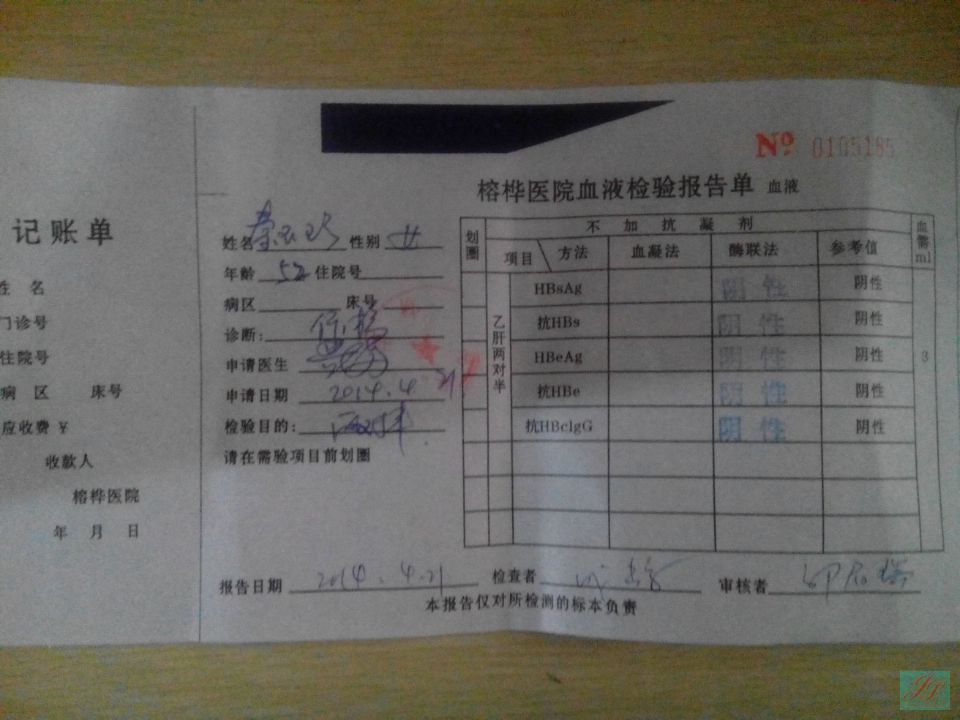 记账单
姓 名
门诊号
住院号
病 区 床号
应收费¥
收款人
榕桦医院
年 月 日
№ 0105185
榕桦医院血液检验报告单 血液
姓名 性别 女
年龄 52 住院号
病区 床号
诊断:
申请医生
申请日期 2014.4.21
检验目的:
请在需验项目前划圈
划圈 不加抗凝剂 血需ml
项目 方法 血凝法 酶联法 参考值
乙肝两对半
HBsAg 阴性 阴性
抗HBs 阴性 阴性
HBeAg 阴性 阴性
抗HBe 阴性 阴性
抗HBcIgG 阴性 阴性
3
报告日期 2014.4.21 检查者 审核者
本报告仅对所检测的标本负责